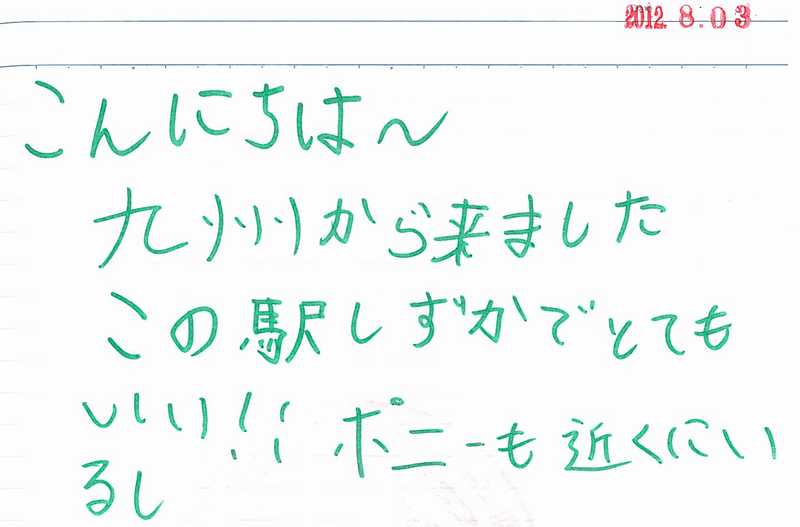 2012. 8. 03
こんにちは〜
九州から来ました
この駅しずかでとても
いい!! ポニーも近くにい
るし